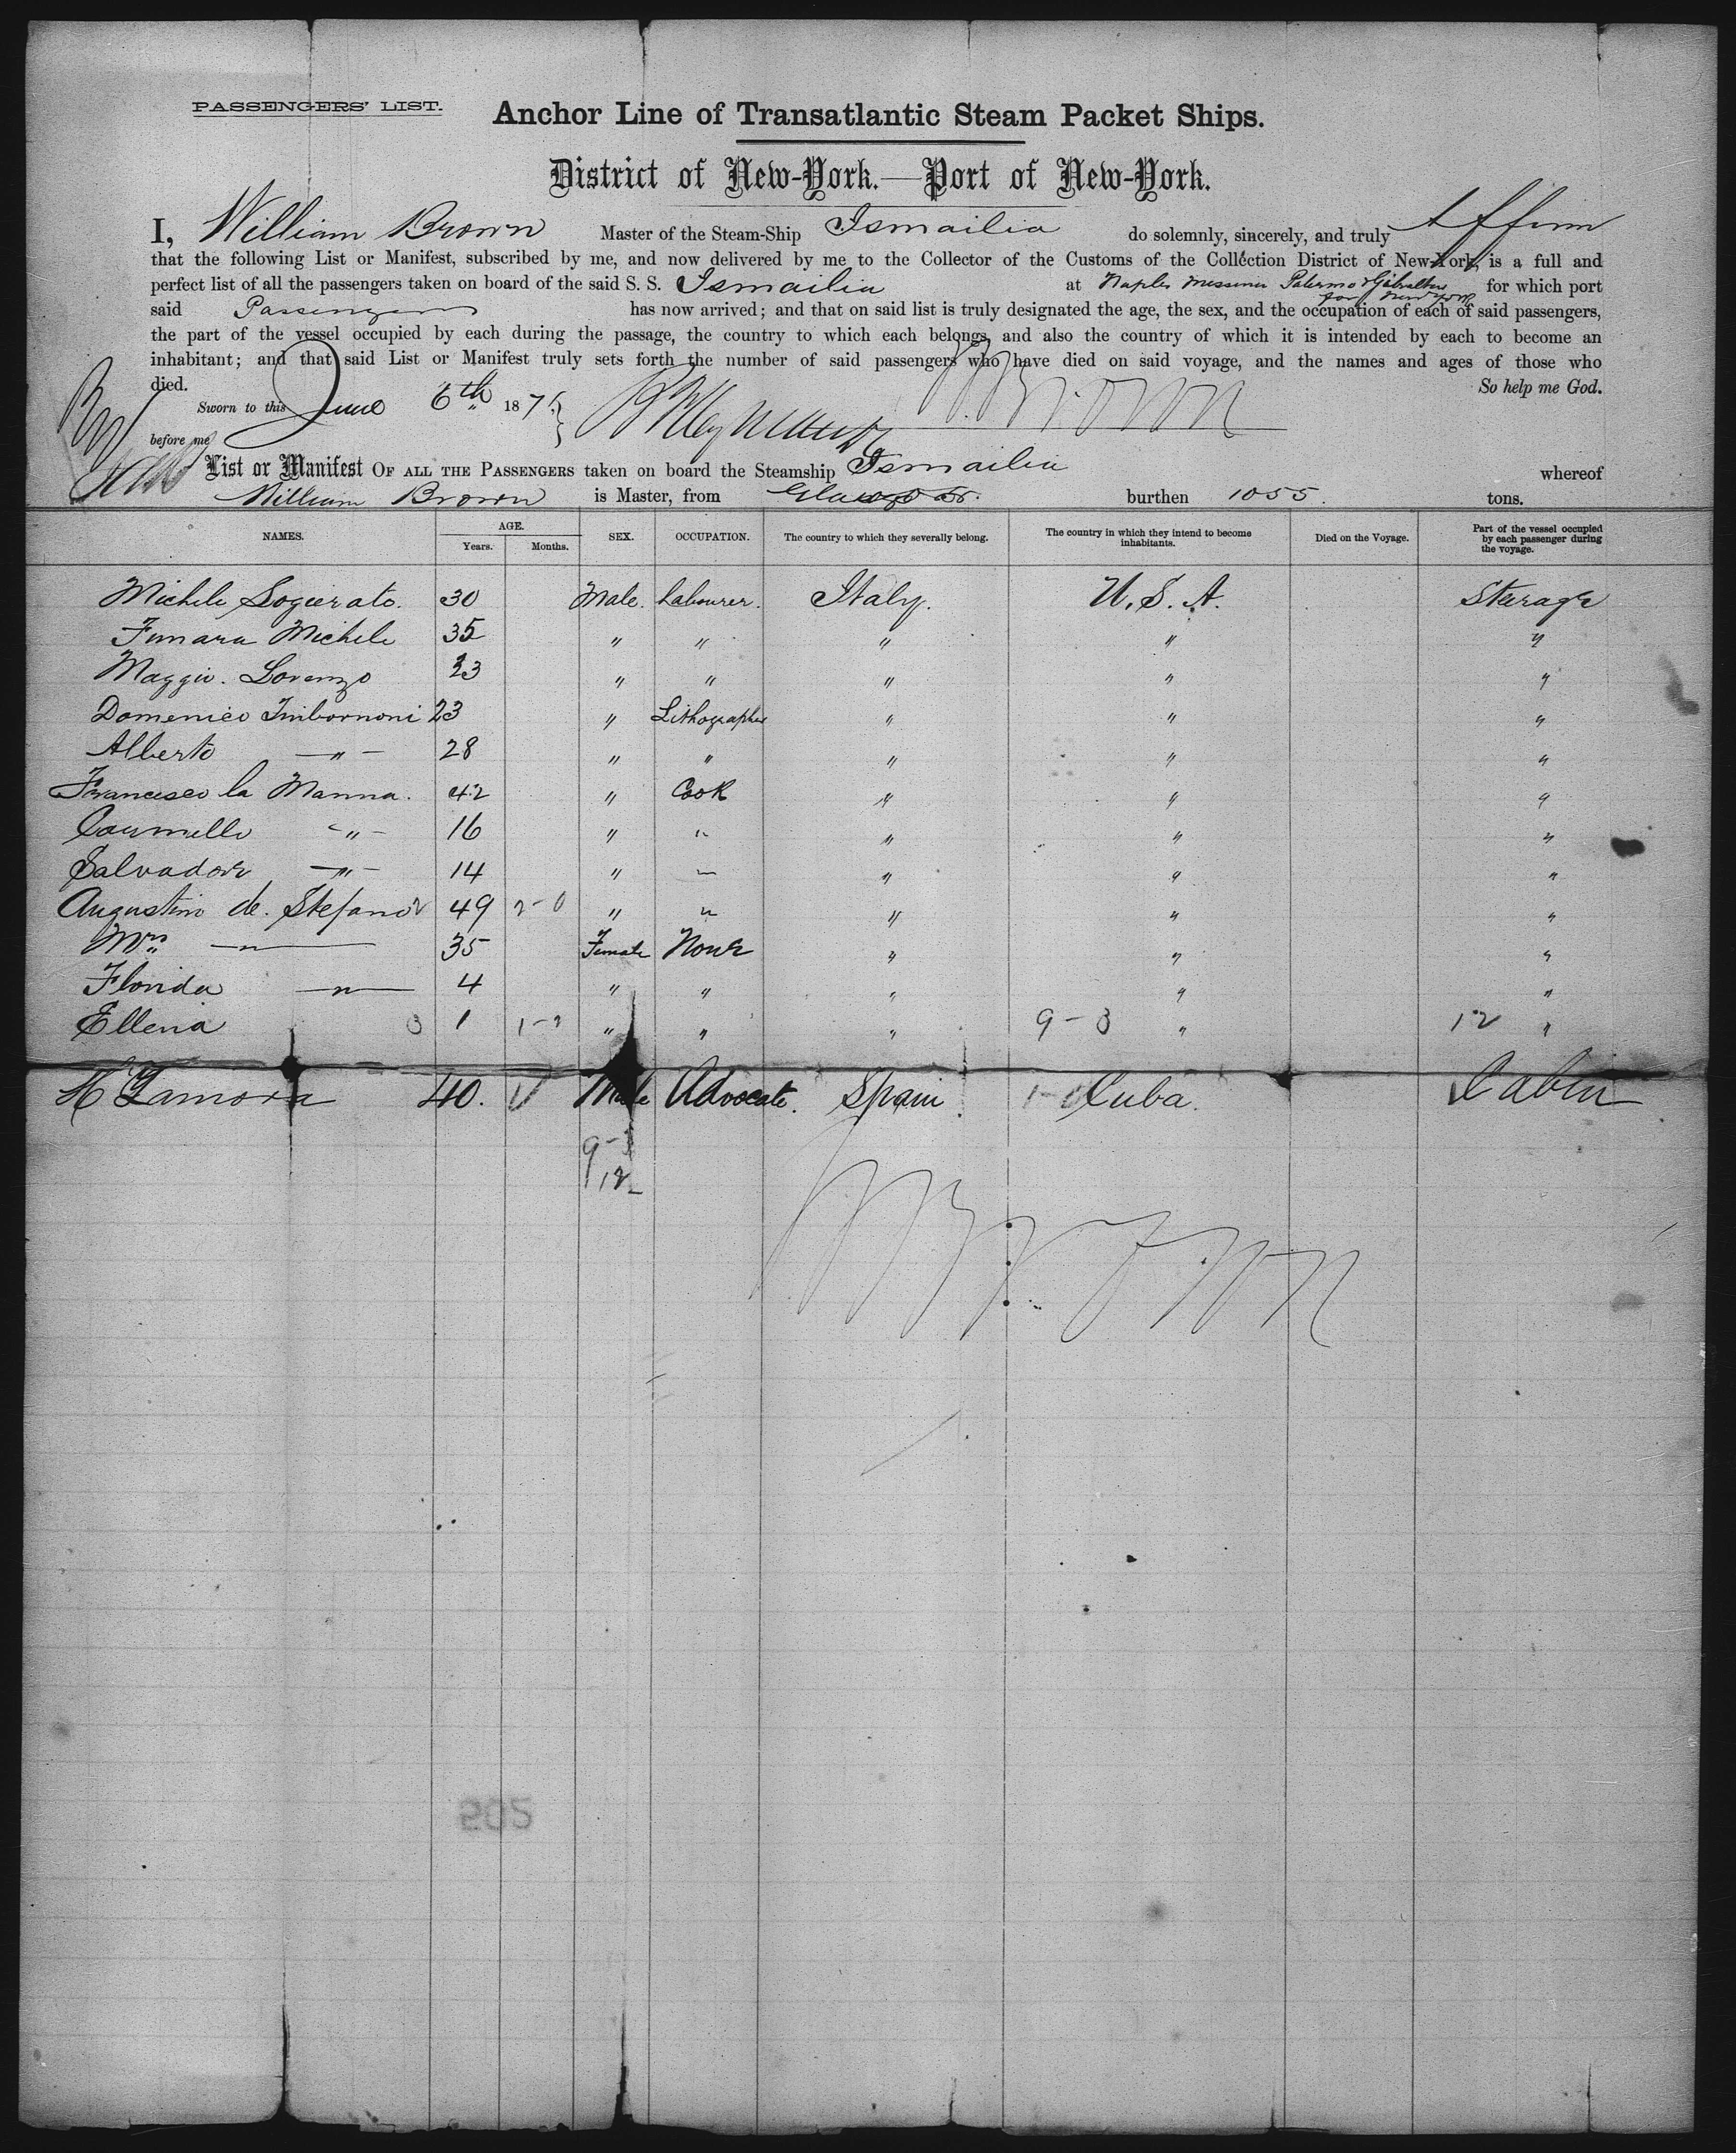 PASSENGERS' LIST.
Anchor Line of Transatlantic Steam Packet Ships.
District of New-York.—Port of New-York.
I, William Brown Master of the Steam-Ship Ismailia do solemnly, sincerely, and truly Affirm
that the following List or Manifest, subscribed by me, and now delivered by me to the Collector of the Customs of the Collection District of New-York, is a full and
perfect list of all the passengers taken on board of the said S. S. Ismailia at Naples Messina Palermo & Gibraltar for which port
for New York
said Passengers has now arrived; and that on said list is truly designated the age, the sex, and the occupation of each of said passengers,
the part of the vessel occupied by each during the passage, the country to which each belongs, and also the country of which it is intended by each to become an
inhabitant; and that said List or Manifest truly sets forth the number of said passengers who have died on said voyage, and the names and ages of those who
died. So help me God.
Sworn to this June 6th 187 W Brown
before me
List or Manifest OF ALL THE PASSENGERS taken on board the Steamship Ismailia whereof
William Brown is Master, from Glasgow burthen 1055 tons.
NAMES. AGE. SEX. OCCUPATION. The country to which they severally belong. The country in which they intend to become inhabitants. Died on the Voyage. Part of the vessel occupied by each passenger during the voyage.
Years. Months.
Michele 30 Male. Labourer. Italy. U. S. A. Steerage
Fumara Michele 35 " " " " "
Maggio. Lorenzo 23 " " " " "
Domenico Imbornoni 23 " Lithographer " " "
Alberto —"— 28 " " " " "
Francisco la Manna. 42 " Cook " " "
Carmello —"— 16 " " " " "
Salvadore —"— 14 " " " " "
Augustino de. Stefano 49 2-0 " " " " "
Mrs —"— 35 Female None " " "
Florida —"— 4 " " " " "
Ellena 3 1 " " " 9-3 " 12 "
M Zamora 40. Male Advocate. Spain. Cuba. Cabin
9-3
12
W Brown
205